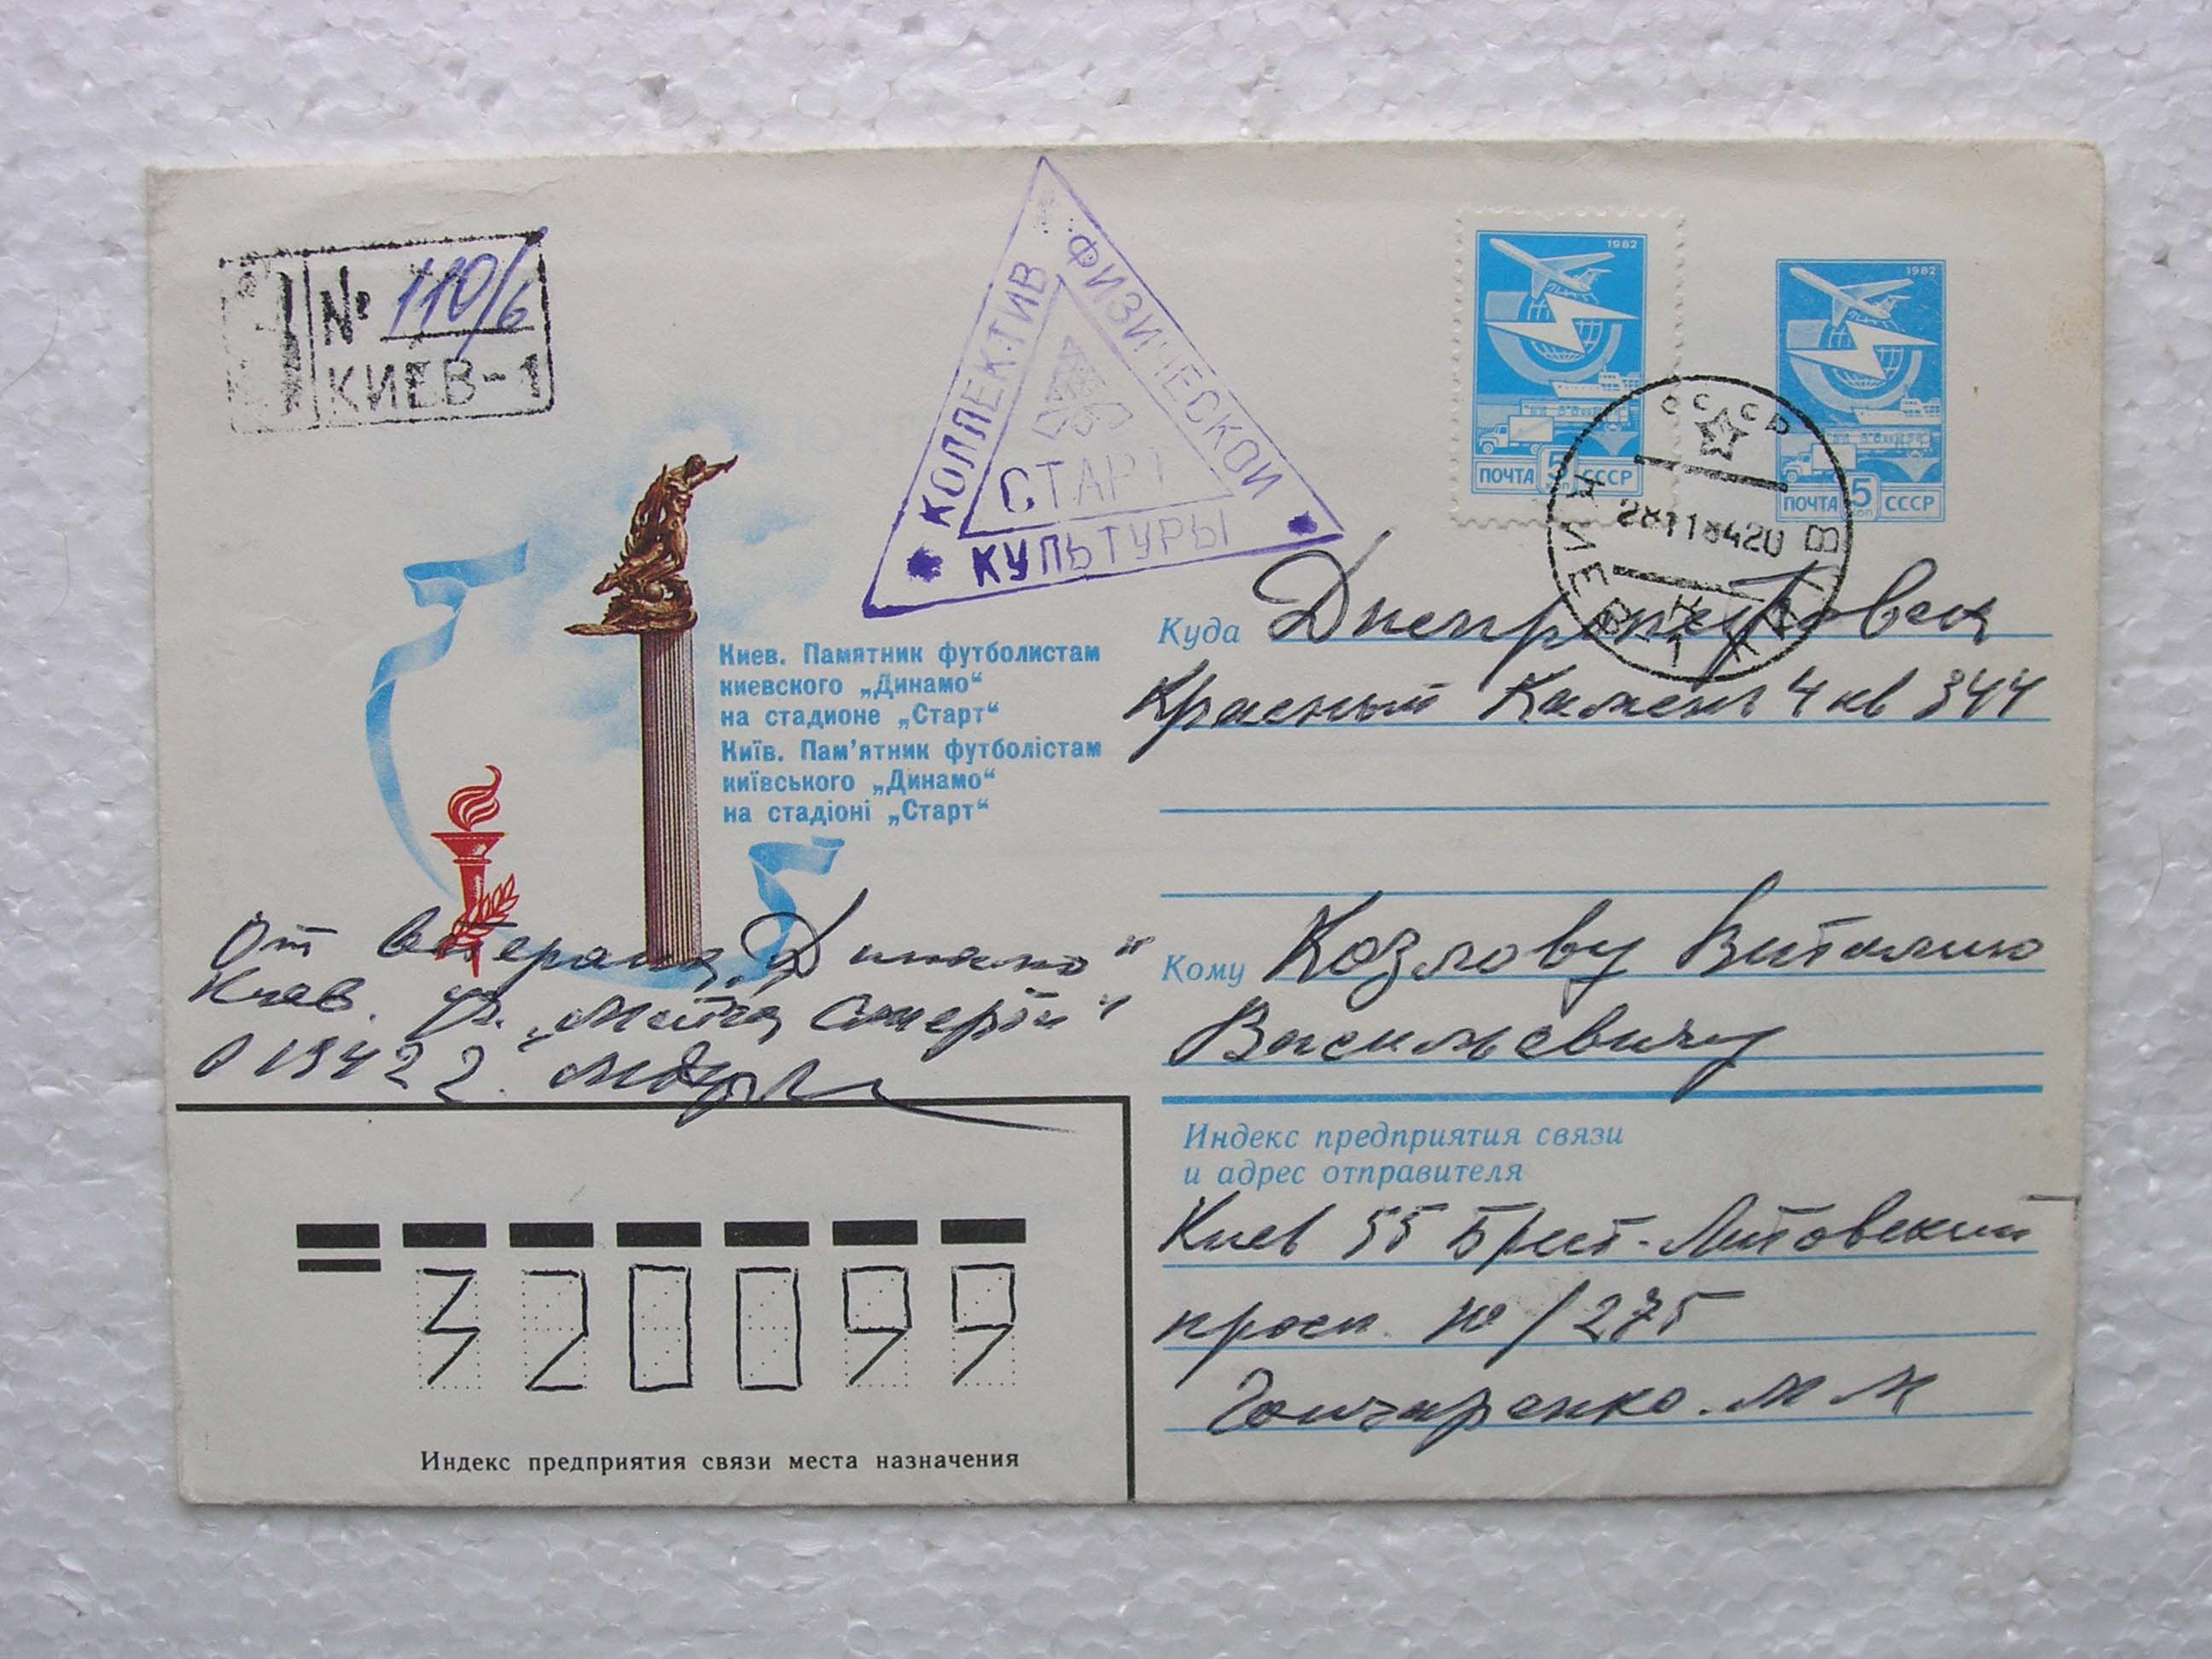 № 110/6
КИЕВ-1
КОЛЛЕКТИВ
ФИЗИЧЕСКОЙ
КУЛЬТУРЫ
СТАРТ
1982
ПОЧТА 5 коп СССР
1982
ПОЧТА 5 коп СССР
СССР
28 11 84 20
КИЕВ
Киев. Памятник футболистам
киевского „Динамо“
на стадионе „Старт“
Київ. Пам'ятник футболістам
київського „Динамо“
на стадіоні „Старт“
Куда Днепропетровск
Красный Камень 4 кв 344
От ветерана „Динамо“
Киев. „Матча Смерти“
1942 г.
Кому Козлову Виталию
Васильевичу
Индекс предприятия связи
и адрес отправителя
Киев 55 Брест-Литовский
просп. 10/275
Гончаренко. М М
320099
Индекс предприятия связи места назначения